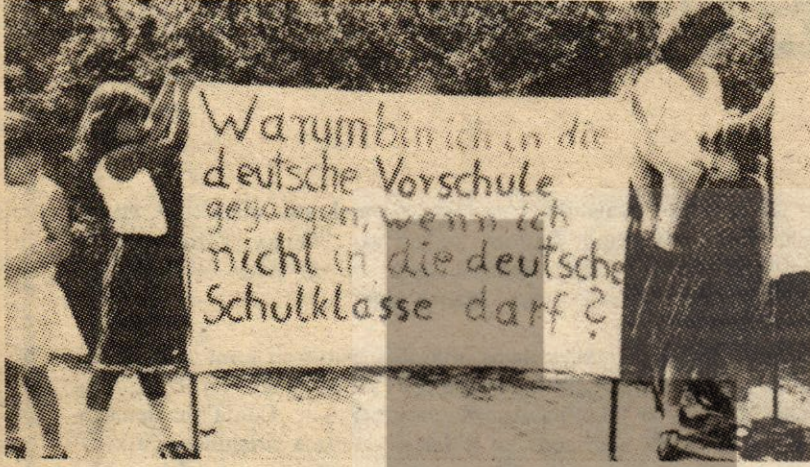 Warum bin ich in die
deutsche Vorschule
gegangen, wenn ich
nicht in die deutsche
Schulklasse darf?